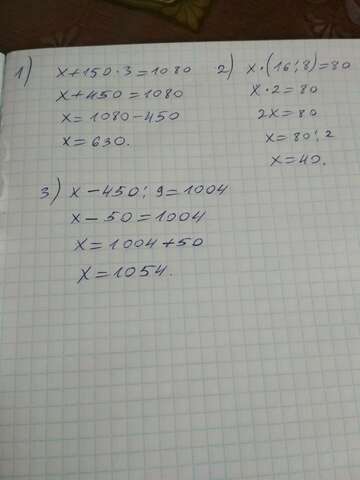 1) x+150·3=1080
x+450=1080
x=1080-450
x=630.
2) x·(16:8)=80
x·2=80
2x=80
x=80:2
x=40.
3) x-450:9=1004
x-50=1004
x=1004+50
x=1054.